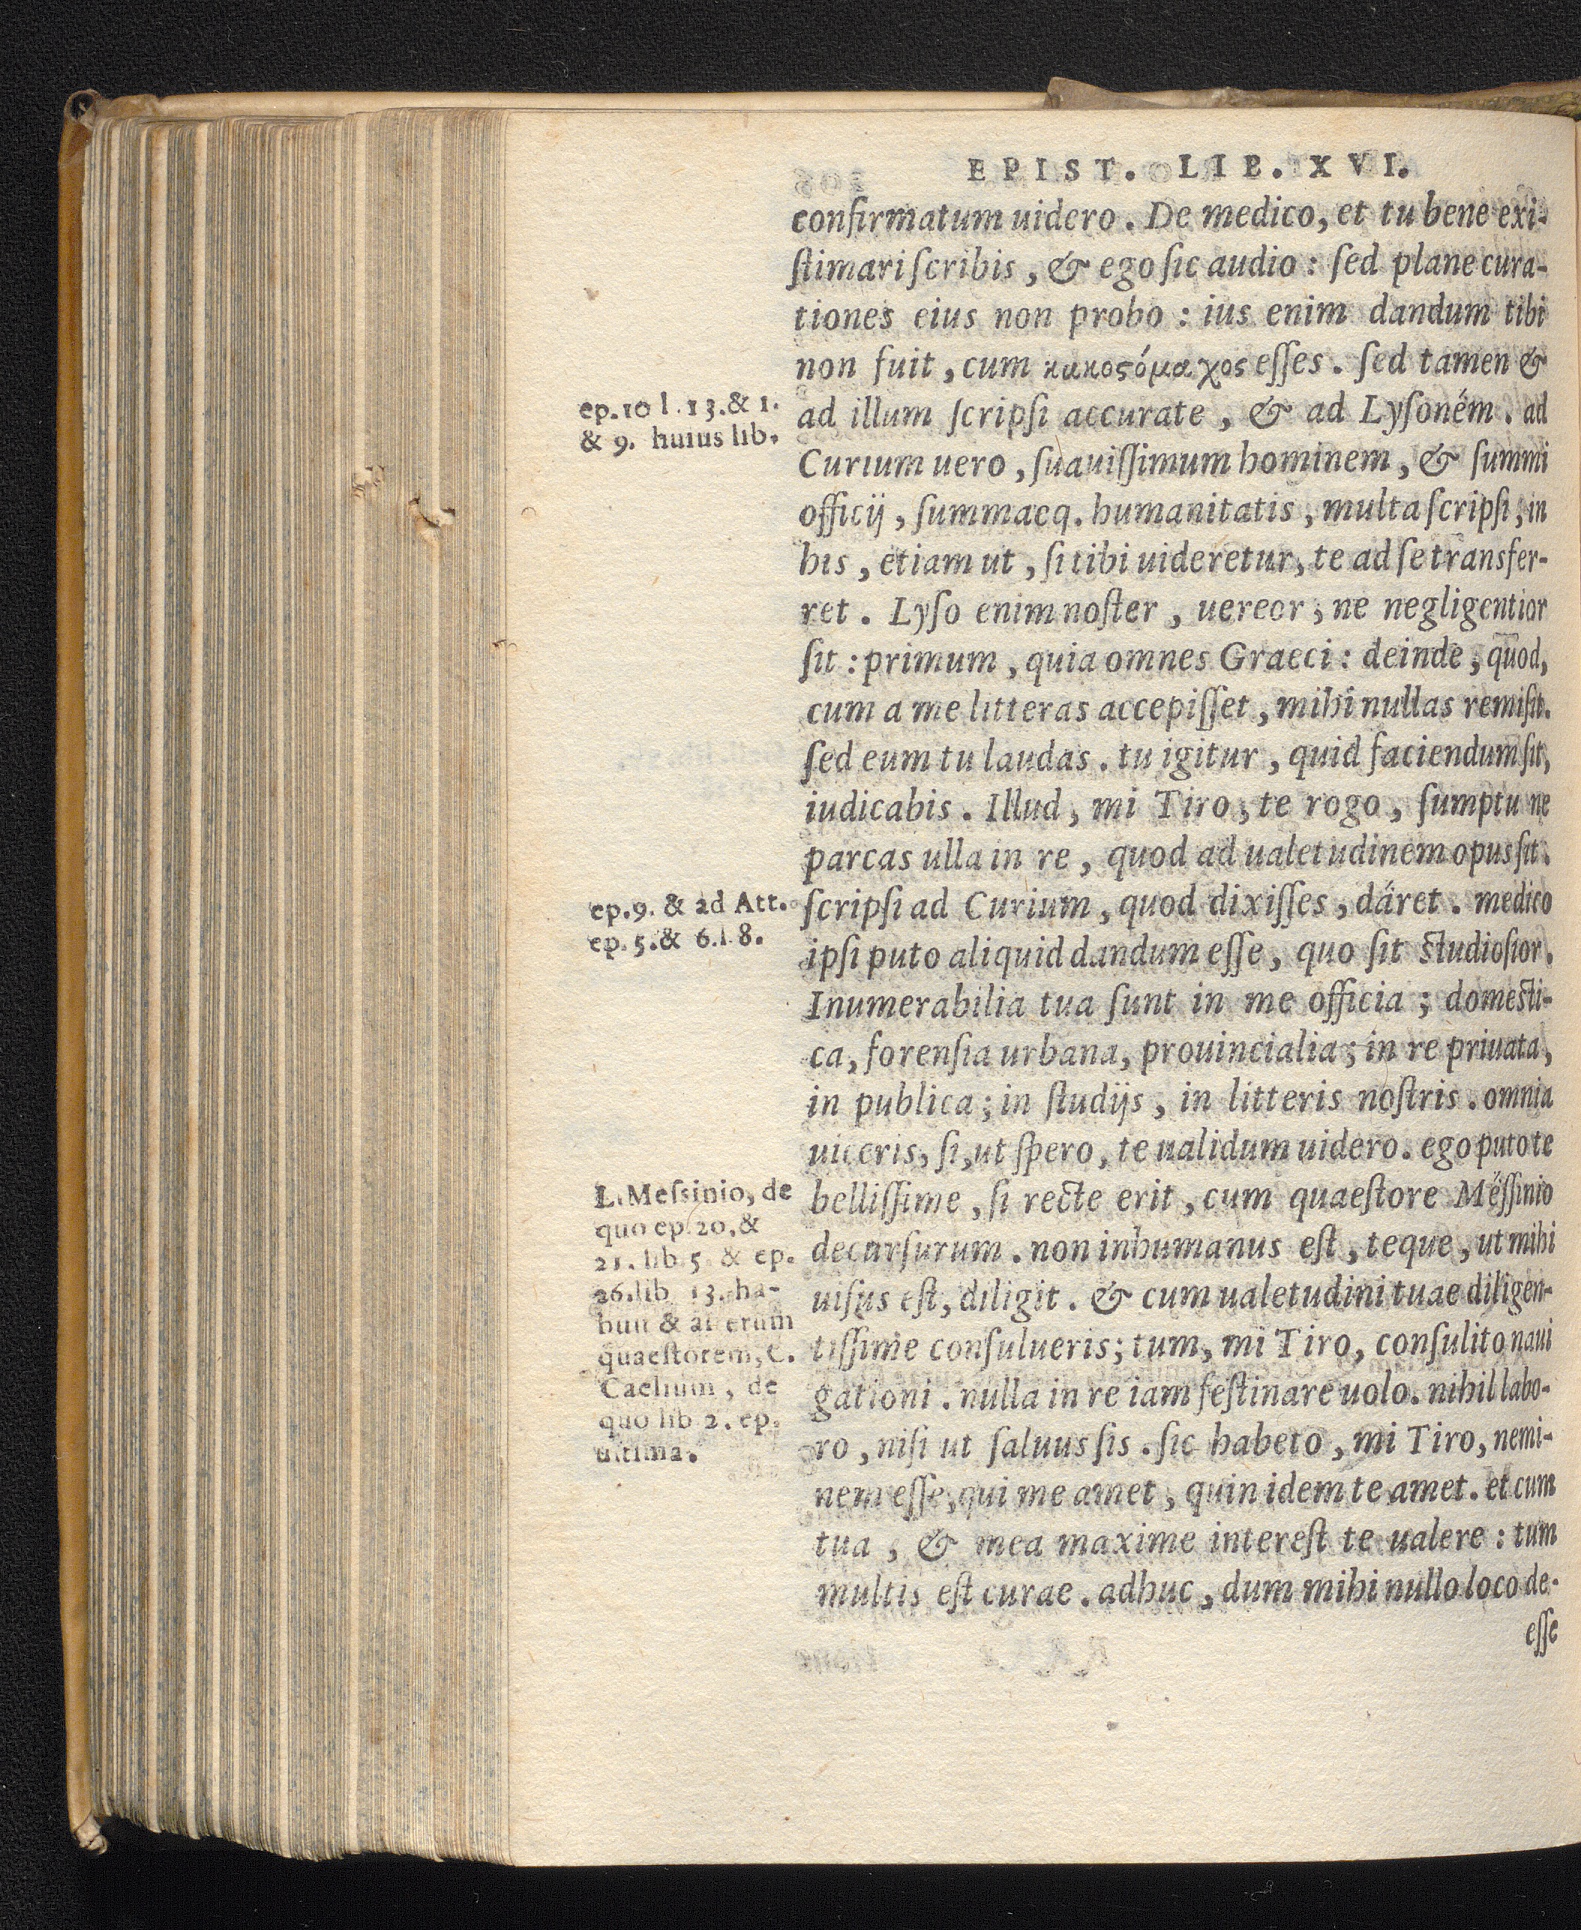 EPIST. LIB. XVI.
confirmatum uidero. De medico, et tu bene exi-
ſtimari ſcribis, & ego ſic audio: ſed plane cura-
tiones eius non probo: ius enim dandum tibi
non fuit, cum κακοςόμαχος eſſes. ſed tamen &
ad illum ſcripſi accurate, & ad Lyſonem. ad
Curium uero, ſuauiſſimum hominem, & ſummi
officij, ſummaeq. humanitatis, multa ſcripſi, in
his, etiam ut, ſi tibi uideretur, te ad ſe transfer-
ret. Lyſo enim noſter, uereor, ne negligentior
ſit: primum, quia omnes Graeci: deinde, quod,
cum a me litteras accepiſſet, mihi nullas remiſit.
ſed eum tu laudas. tu igitur, quid faciendum ſit,
iudicabis. Illud, mi Tiro, te rogo, ſumptu ne
parcas ulla in re, quod ad ualetudinem opus ſit.
ſcripſi ad Curium, quod dixiſſes, daret. medico
ipſi puto aliquid dandum eſſe, quo ſit ſtudioſior.
Inumerabilia tua ſunt in me officia; domeſti-
ca, forenſia urbana, prouincialia; in re priuata,
in publica; in ſtudijs, in litteris noſtris. omnia
uiceris, ſi, ut ſpero, te ualidum uidero. ego puto te
belliſſime, ſi recte erit, cum quaeſtore Meſſinio
decurſurum. non inhumanus eſt, teque, ut mihi
uiſus eſt, diligit. & cum ualetudini tuae diligen-
tiſſime conſulueris; tum, mi Tiro, conſulito naui
gationi. nulla in re iam feſtinare uolo. nihil labo-
ro, niſi ut ſaluus ſis. ſic habeto, mi Tiro, nemi-
nem eſſe, qui me amet, quin idem te amet. et cum
tua, & mea maxime intereſt te ualere: tum
multis eſt curae. adhuc, dum mihi nullo loco de-
eſſe
ep. 10 l. 13. & 1.
& 9. huius lib.
ep. 9. & ad Att.
ep. 5. & 6. l. 8.
L. Meſsinio, de
quo ep. 20, &
21. lib 5 & ep.
26. lib 13. ha-
buit & alterum
quaeſtorem, C.
Caelium, de
quo lib 2. ep.
ultima.